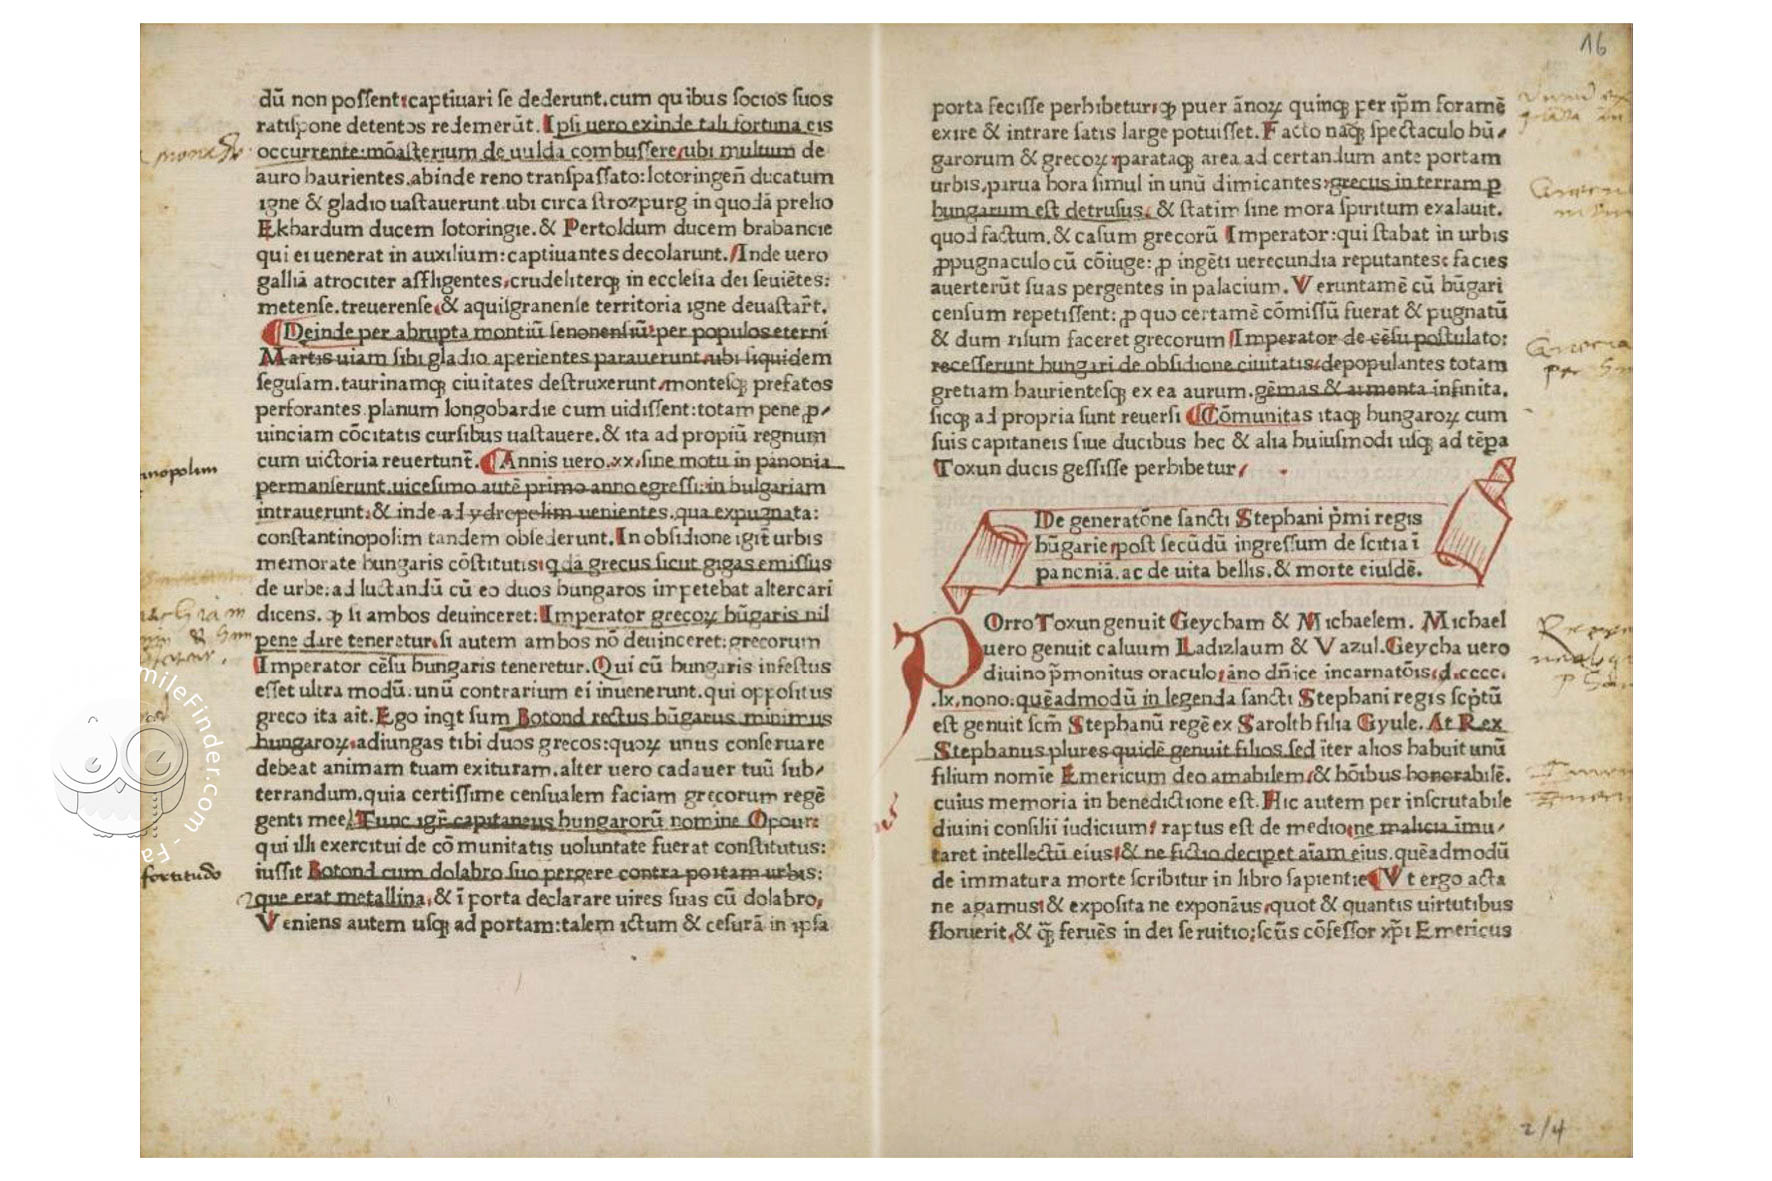 dū non possent: captiuari se dederunt. cum quibus socios suos
ratispone detentos redemerūt. Ipsi uero exinde tali fortuna eis
occurrente: mōasterium de uulda combussere, ubi multum de
auro haurientes. abinde reno transpassato: lotoringeñ ducatum
igne & gladio uastauerunt ubi circa strozpurg in quodā prelio
Ekhardum ducem lotoringie. & Pertoldum ducem brabancie
qui ei uenerat in auxilium: captiuantes decolarunt. Inde uero
galliā atrociter affligentes, crudeliterqȝ in ecclesia dei seuiētes:
metense. treuerense, & aquisgranense territoria igne deuastar̄t.
Deinde per abrupta montiū senonensiū: per populos eterni
Martis uiam sibi gladio aperientes parauerunt, ubi siquidem
segusam. taurinamqȝ ciuitates destruxerunt, montesqȝ prefatos
perforantes. planum longobardie cum uidissent: totam pene ꝓ/
uinciam cōcitatis cursibus uastauere. & ita ad propiū regnum
cum uictoria reuertunt̄. Annis uero .xx, sine motu in panonia
permanserunt. uicesimo autē primo anno egressi: in bulgariam
intrauerunt: & inde ad ydropolim uenientes. qua expugnata:
constantinopolim tandem obsederunt. In obsidione igit̄ urbis
memorate hungaris cōstitutis: qdā grecus sicut gigas emissus
de urbe: ad luctandū cū eo duos hungaros impetebat altercari
dicens. ꝙ si ambos deuinceret: Imperator grecoꝝ hūgaris nil
pene dare teneretur, si autem ambos nō deuinceret: grecorum
Imperator cēsu hungaris teneretur. Qui cū hungaris infestus
esset ultra modū. unū contrarium ei inuenerunt. qui oppositus
greco ita ait. Ego inqt sum Botond rectus hūgarus minimus
hungaroꝝ, adiungas tibi duos grecos: quoꝝ unus conseruare
debeat animam tuam exituram. alter uero cadauer tuū sub/
terrandum. quia certissime censualem faciam grecorum regē
genti mee. Tunc igr̄ capitaneus hungarorū nomine Opour:
qui illi exercitui de cōmunitatis uoluntate fuerat constitutus:
iussit Botond cum dolabro suo pergere contra portam urbis:
que erat metallina, & ī porta declarare uires suas cū dolabro,
Veniens autem usqȝ ad portam: talem ictum & cesurā in ipsa
nopolim
fortitudo
16
porta fecisse perhibetur, ꝙ puer āñoꝝ quinqȝ per ip̄m foramē
exire & intrare satis large potuisset. Facto naqȝ spectaculo hū/
garorum & grecoꝝ, parataqȝ area ad certandum ante portam
urbis, parua hora simul in unū dimicantes, grecus in terram ꝑ
hungarum est detrusus, & statim sine mora spiritum exalauit.
quod factum. & casum grecorū Imperator: qui stabat in urbis
ꝓpugnaculo cū cōiuge: ꝓ ingēti uerecundia reputantes: facies
auerterūt suas pergentes in palacium. Veruntamē cū hūgari
censum repetissent: ꝓ quo certamē cōmissū fuerat & pugnatū
& dum risum faceret grecorum Imperator de cēsu postulato:
recesserunt hungari de obsidione ciuitatis, depopulantes totam
gretiam haurientesqȝ ex ea aurum. gēmas & armenta infinita.
sicqȝ ad propria sunt reuersi Cōmunitas itaqȝ hungaroꝝ cum
suis capitaneis siue ducibus hec & alia huiusmodi usqȝ ad tēpa
Toxun ducis gessisse perhibetur,
De generatōne sancti Stephani p̄mi regis
hūgarie, post secūdū ingressum de scitia ī
panoniā. ac de uita bellis. & morte eiusdē.
POrro Toxun genuit Geycham & Michaelem. Michael
uero genuit caluum Ladizlaum & Vazul. Geycha uero
diuino p̄monitus oraculo, āno dn̄ice incarnatōis, d.cccc.
.lx. nono: quēadmodū in legenda sancti Stephani regis scp̄tū
est genuit scm̄ Stephanū regē ex Sarolth filia Gyule. At Rex
Stephanus plures quidē genuit filios sed īter alios habuit unū
filium nomīe Emericum deo amabilem, & hōibus honorabilē.
cuius memoria in benedictione est. Hic autem per inscrutabile
diuini consilii iudicium, raptus est de medio, ne malicia īmu/
taret intellectū eius, & ne fictio decipet aīam eius. quēadmodū
de immatura morte scribitur in libro sapientie Vt ergo acta
ne agamus, & exposita ne exponāus, quot & quantis uirtutibus
floruerit, & qȝ̄ feruēs in dei seruitio; scūs cōfessor xp̄i Emericus
2/4